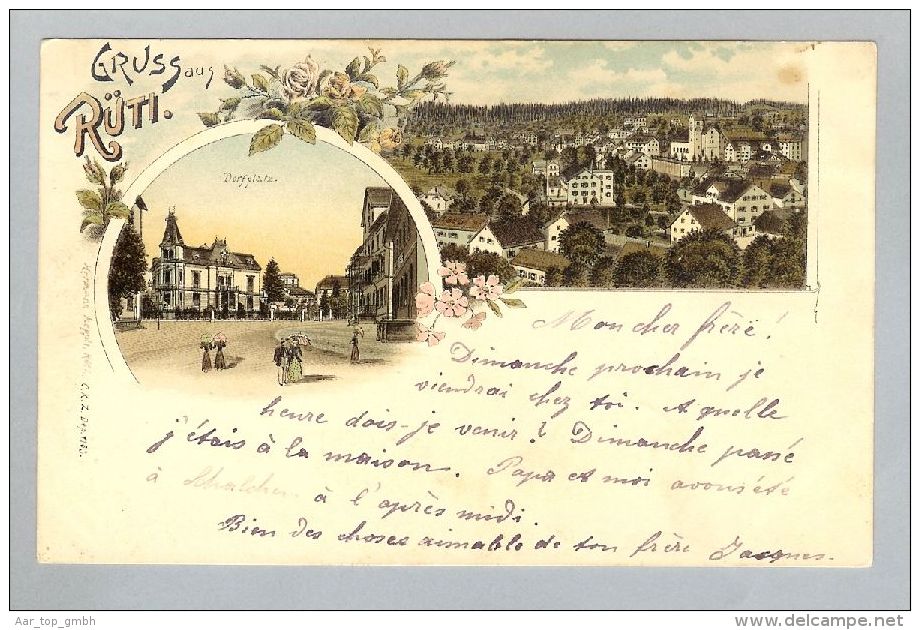 GRUSS aus
RÜTI.
Dorfplatz.
Mon cher frère!
Dimanche prochain je
viendrai chez toi. A quelle
heure dois-je venir? Dimanche passé
j'étais à la maison. Papa et moi avons été
à à l'après midi.
Bien des choses aimable de ton frère Jacques.
Aar_top_gmbh
www.delcampe.net